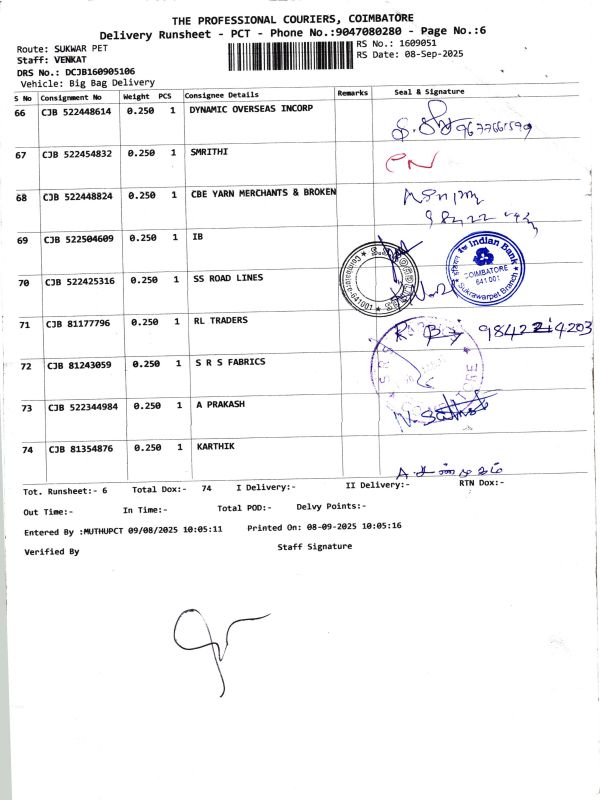 THE PROFESSIONAL COURIERS, COIMBATORE
Delivery Runsheet - PCT - Phone No.:9047080280 - Page No.:6
Route: SUKWAR PET
RS No.: 1609051
Staff: VENKAT
RS Date: 08-Sep-2025
DRS No.: DCJB160905106
Vehicle: Big Bag Delivery
S No Consignment No Weight PCS Consignee Details Remarks Seal & Signature
66 CJB 522448614 0.250 1 DYNAMIC OVERSEAS INCORP
67 CJB 522454832 0.250 1 SMRITHI
68 CJB 522448824 0.250 1 CBE YARN MERCHANTS & BROKEN
69 CJB 522504609 0.250 1 IB
Indian Bank
COIMBATORE
641 001
Sukrawarpet Branch
70 CJB 522425316 0.250 1 SS ROAD LINES
71 CJB 81177796 0.250 1 RL TRADERS
72 CJB 81243059 0.250 1 S R S FABRICS
73 CJB 522344984 0.250 1 A PRAKASH
74 CJB 81354876 0.250 1 KARTHIK
Tot. Runsheet:- 6 Total Dox:- 74 I Delivery:- II Delivery:- RTN Dox:-
Out Time:- In Time:- Total POD:- Delvy Points:-
Entered By :MUTHUPCT 09/08/2025 10:05:11 Printed On: 08-09-2025 10:05:16
Verified By Staff Signature